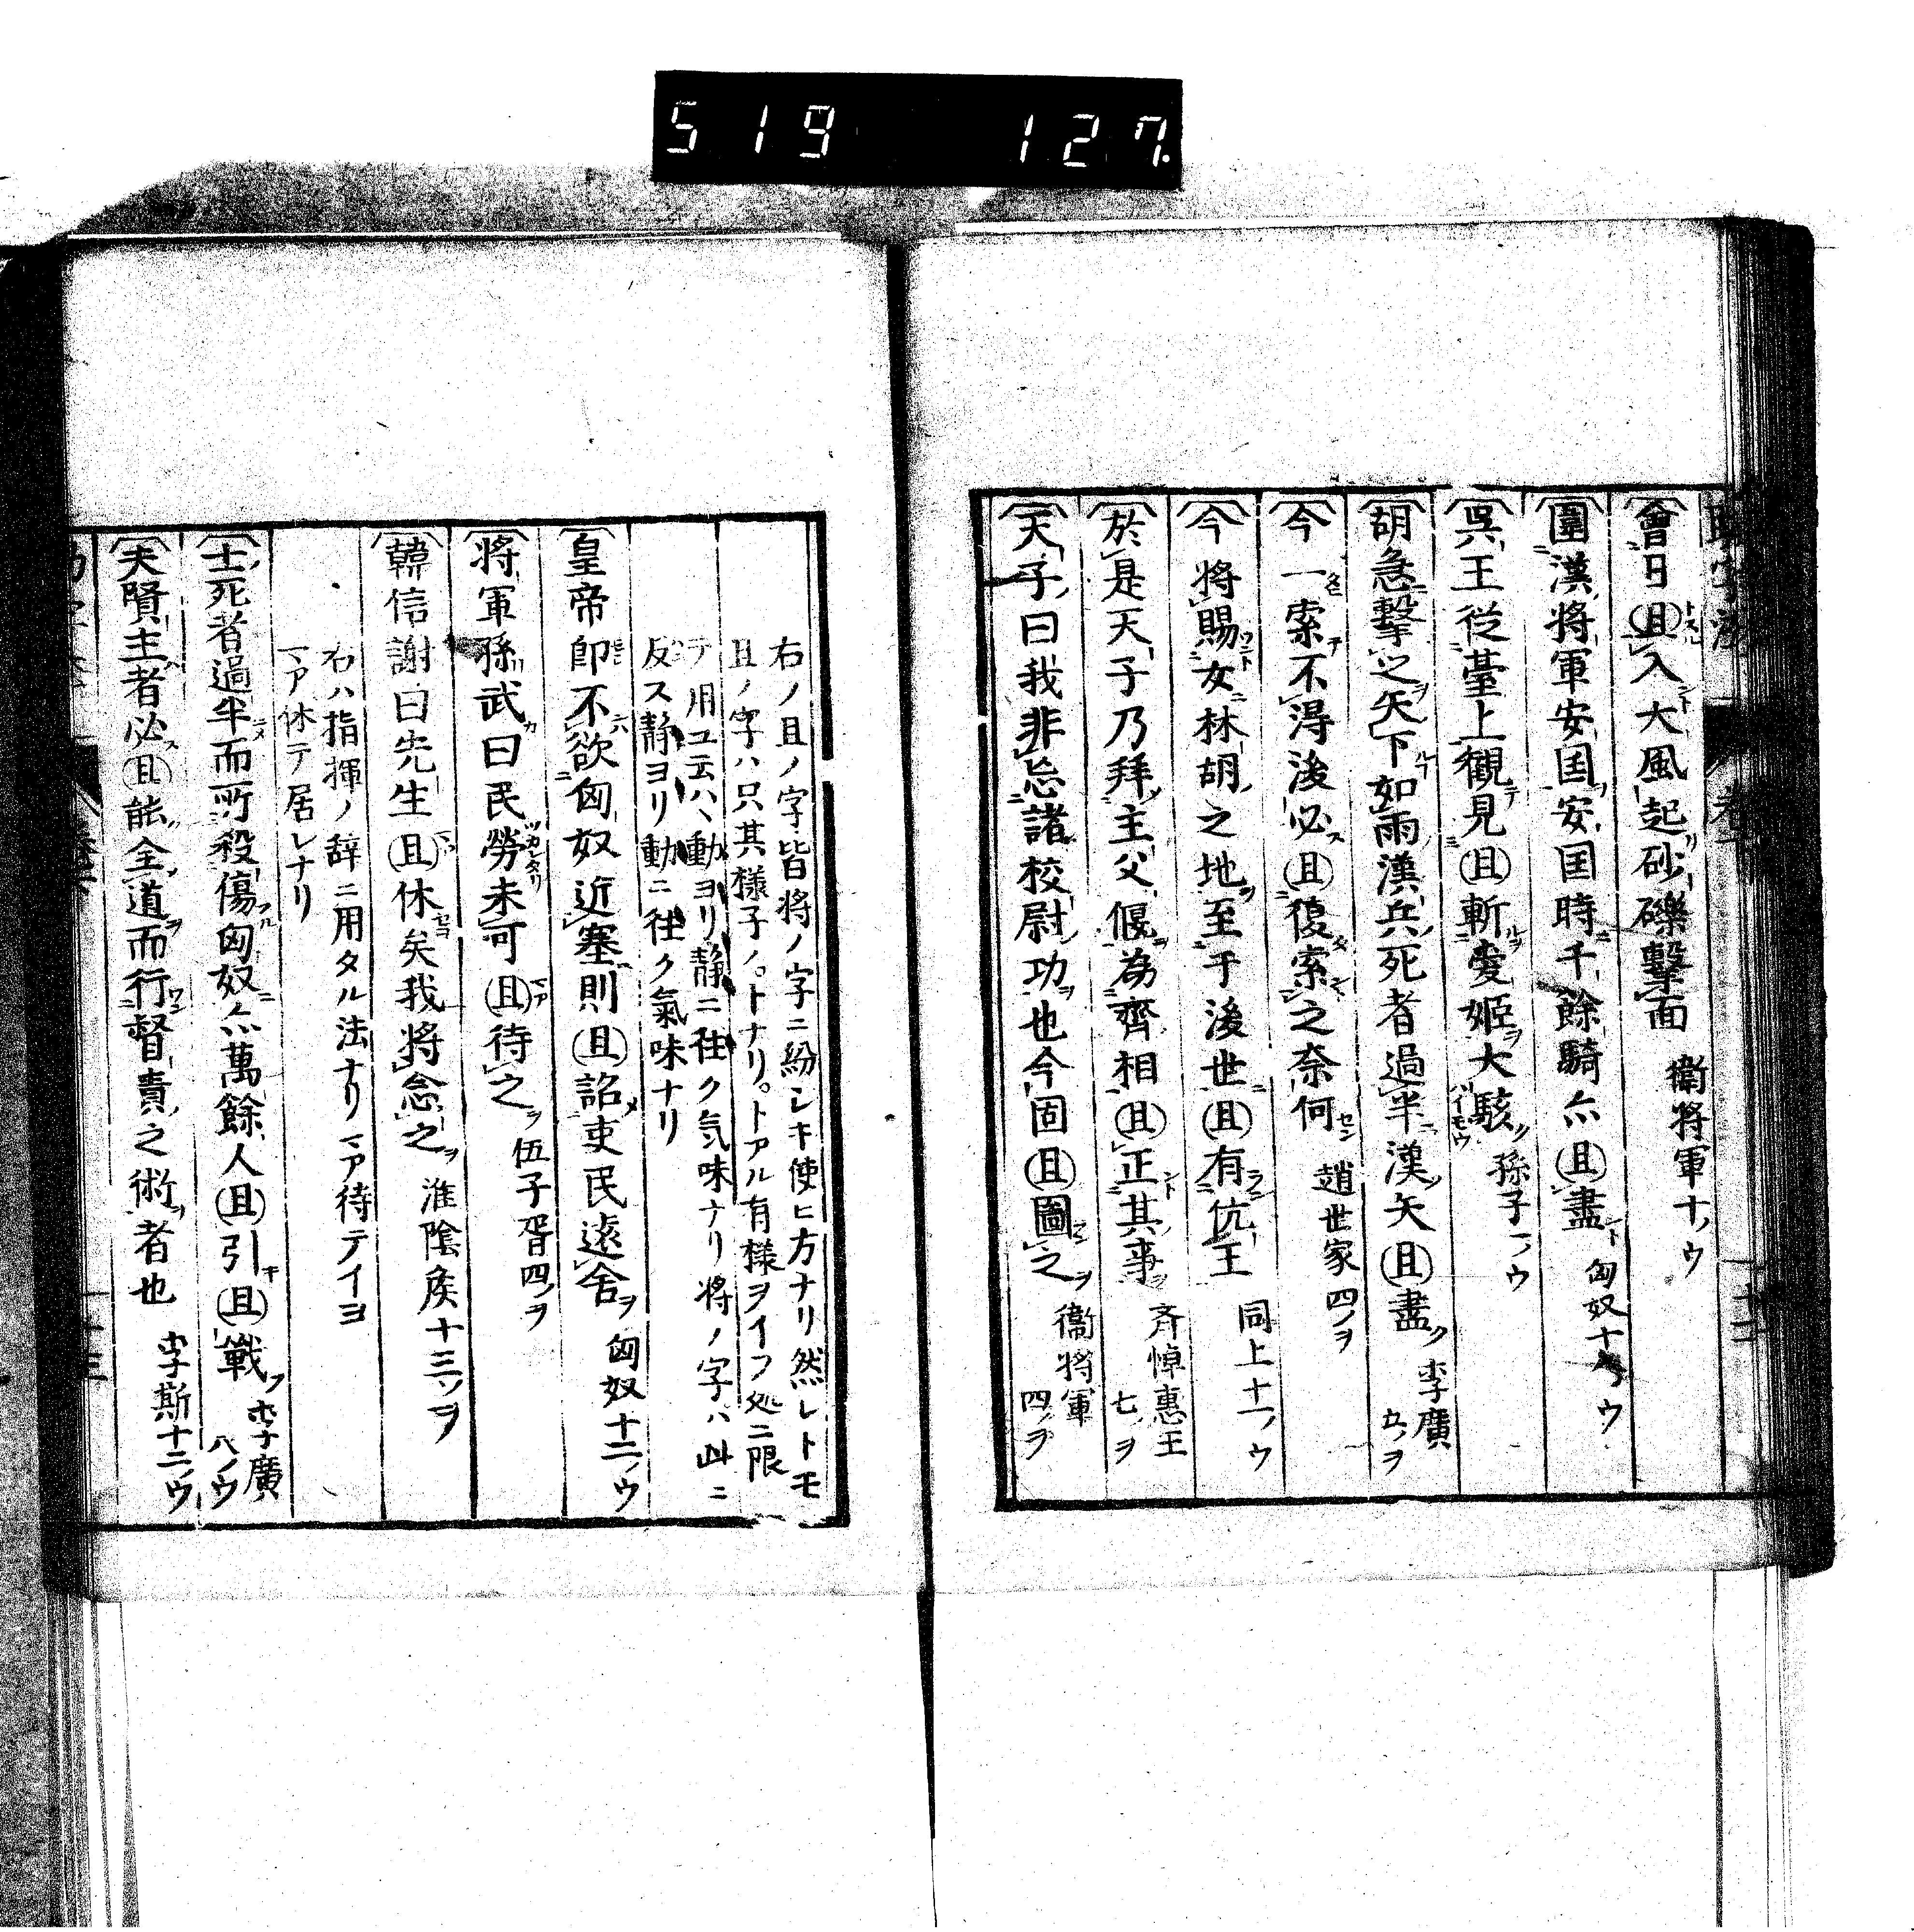 519 127
會日且入大風起砂礫擊面 衛將軍十ノウ
圍漢將軍安国安国時千餘騎亦且盡 匈奴十ノウ
呉王従臺上観見且斬愛姫大駭 孫子一ノウ
胡急擊之矢下如雨漢兵死者過半漢矢且盡 李廣五ノヲ
今一索不得後必且復索之奈何 趙世家四ノヲ
今將賜女林胡之地至于後世且有伉王 同上十一ノウ
於是天子乃拜主父偃為齊相且正其事 斉悼惠王七ノヲ
天子曰我非忘諸校尉功也今固且圖之 衞將軍四ノヲ
右ノ且ノ字皆将ノ字ニ紛レキ使ヒ方ナリ然レトモ
且ノ字ハ只其様子ノトナリトアル有様ヲイフ処ニ限
テ用ユ云ハヽ動ヨリ静ニ往ク気味ナリ将ノ字ハ此ニ
反ス静ヨリ動ニ往ク氣味ナリ
皇帝即不欲匈奴近塞則且詔吏民遠舍 匈奴十二ノウ
將軍孫武曰民勞未可且待之 伍子胥四ノヲ
韓信謝曰先生且休矣我将念之 淮陰侯十三ノヲ
右ハ指揮ノ辞ニ用タル法ナリマア待テイヨ
マア休テ居レナリ
士死者過半而所殺傷匈奴亦萬餘人且引且戰 李廣八ノウ
夫賢主者必且能全道而行督責之術者也 李斯十二ノウ